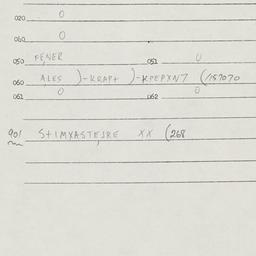 020 0
040 0
050 FENER 051 0
060 ALES )-KRAPT )-KPEPXN7 (157070
061 0 062 0
901 STIMXASTEJRE XX (268